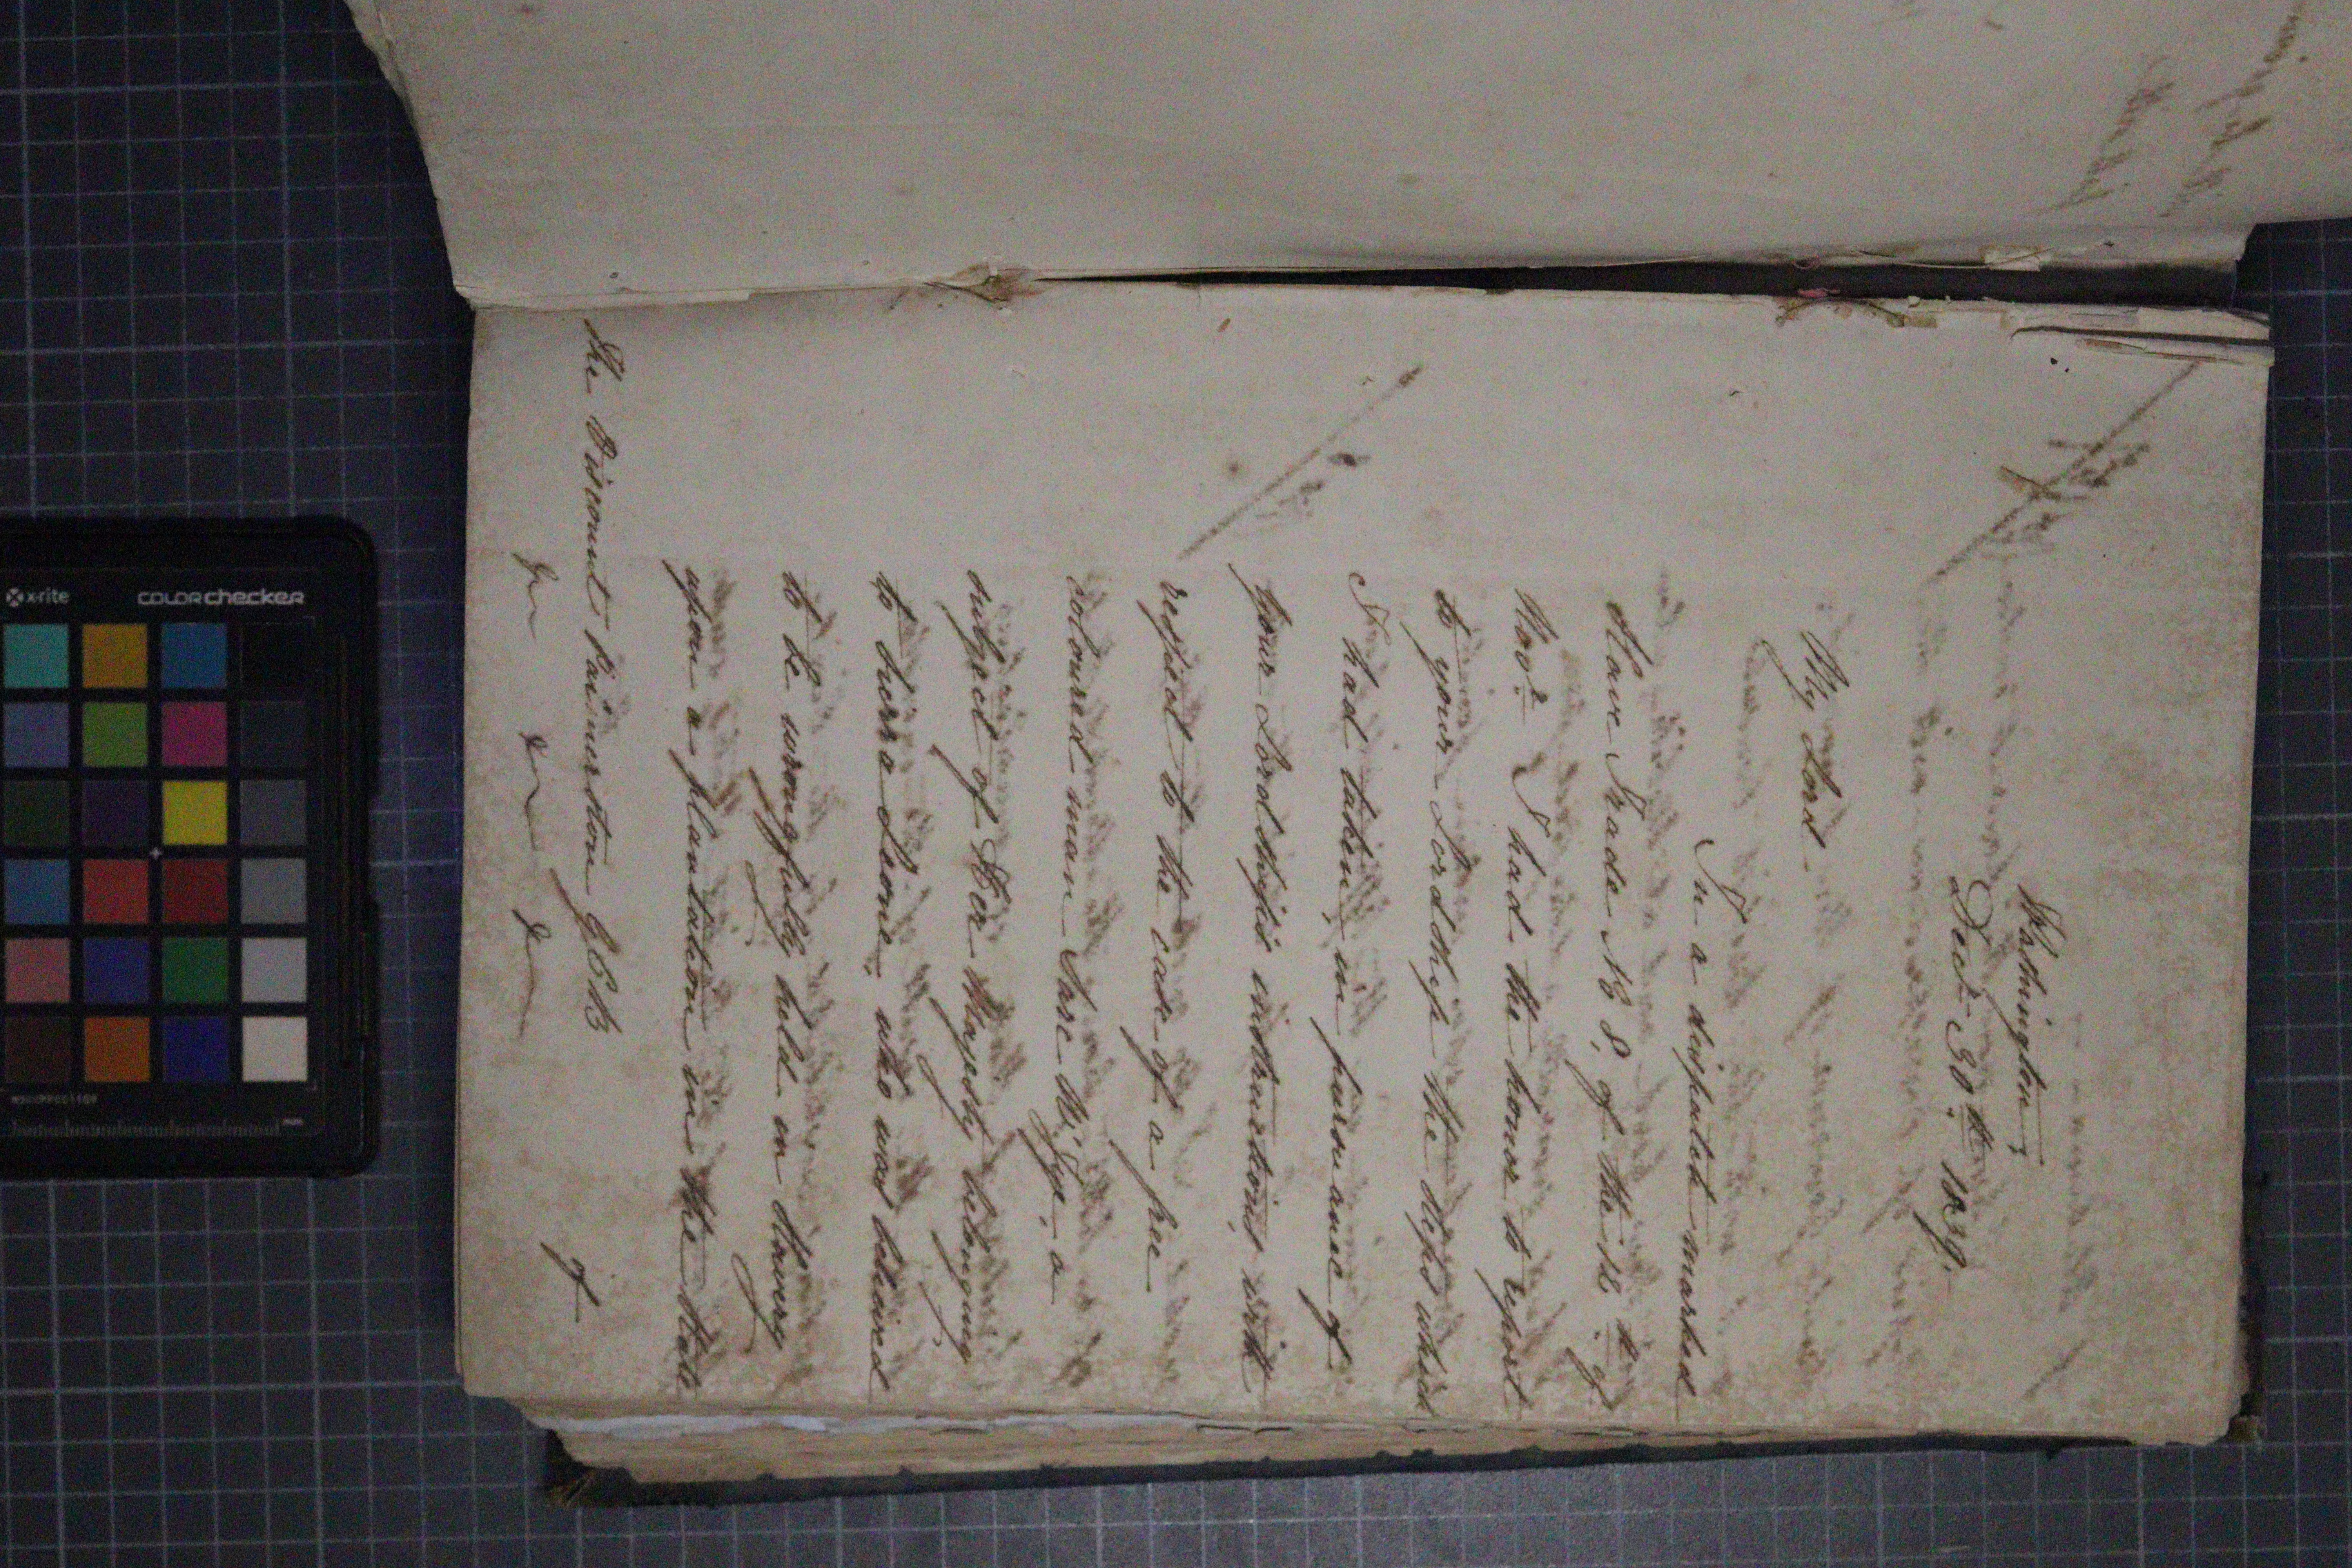 Washington,
Dect. 30th 1839.
My Lord.
In a dispatch marked
Slave Trade No 8, of the 14th of
Novr. I had the honor to report
to your Lordship the steps which
I had taken, in pursuance of
Your Lordship's instructions, with
respect to the case of a free
coloured man
subject of Her Majesty belonging
to Sierra Leone, who was believed
to be wrongfully held in slavery
upon a plantation in the State
of
The Viscount Palmerston GCB
&c &c &c
x-rite
colorchecker